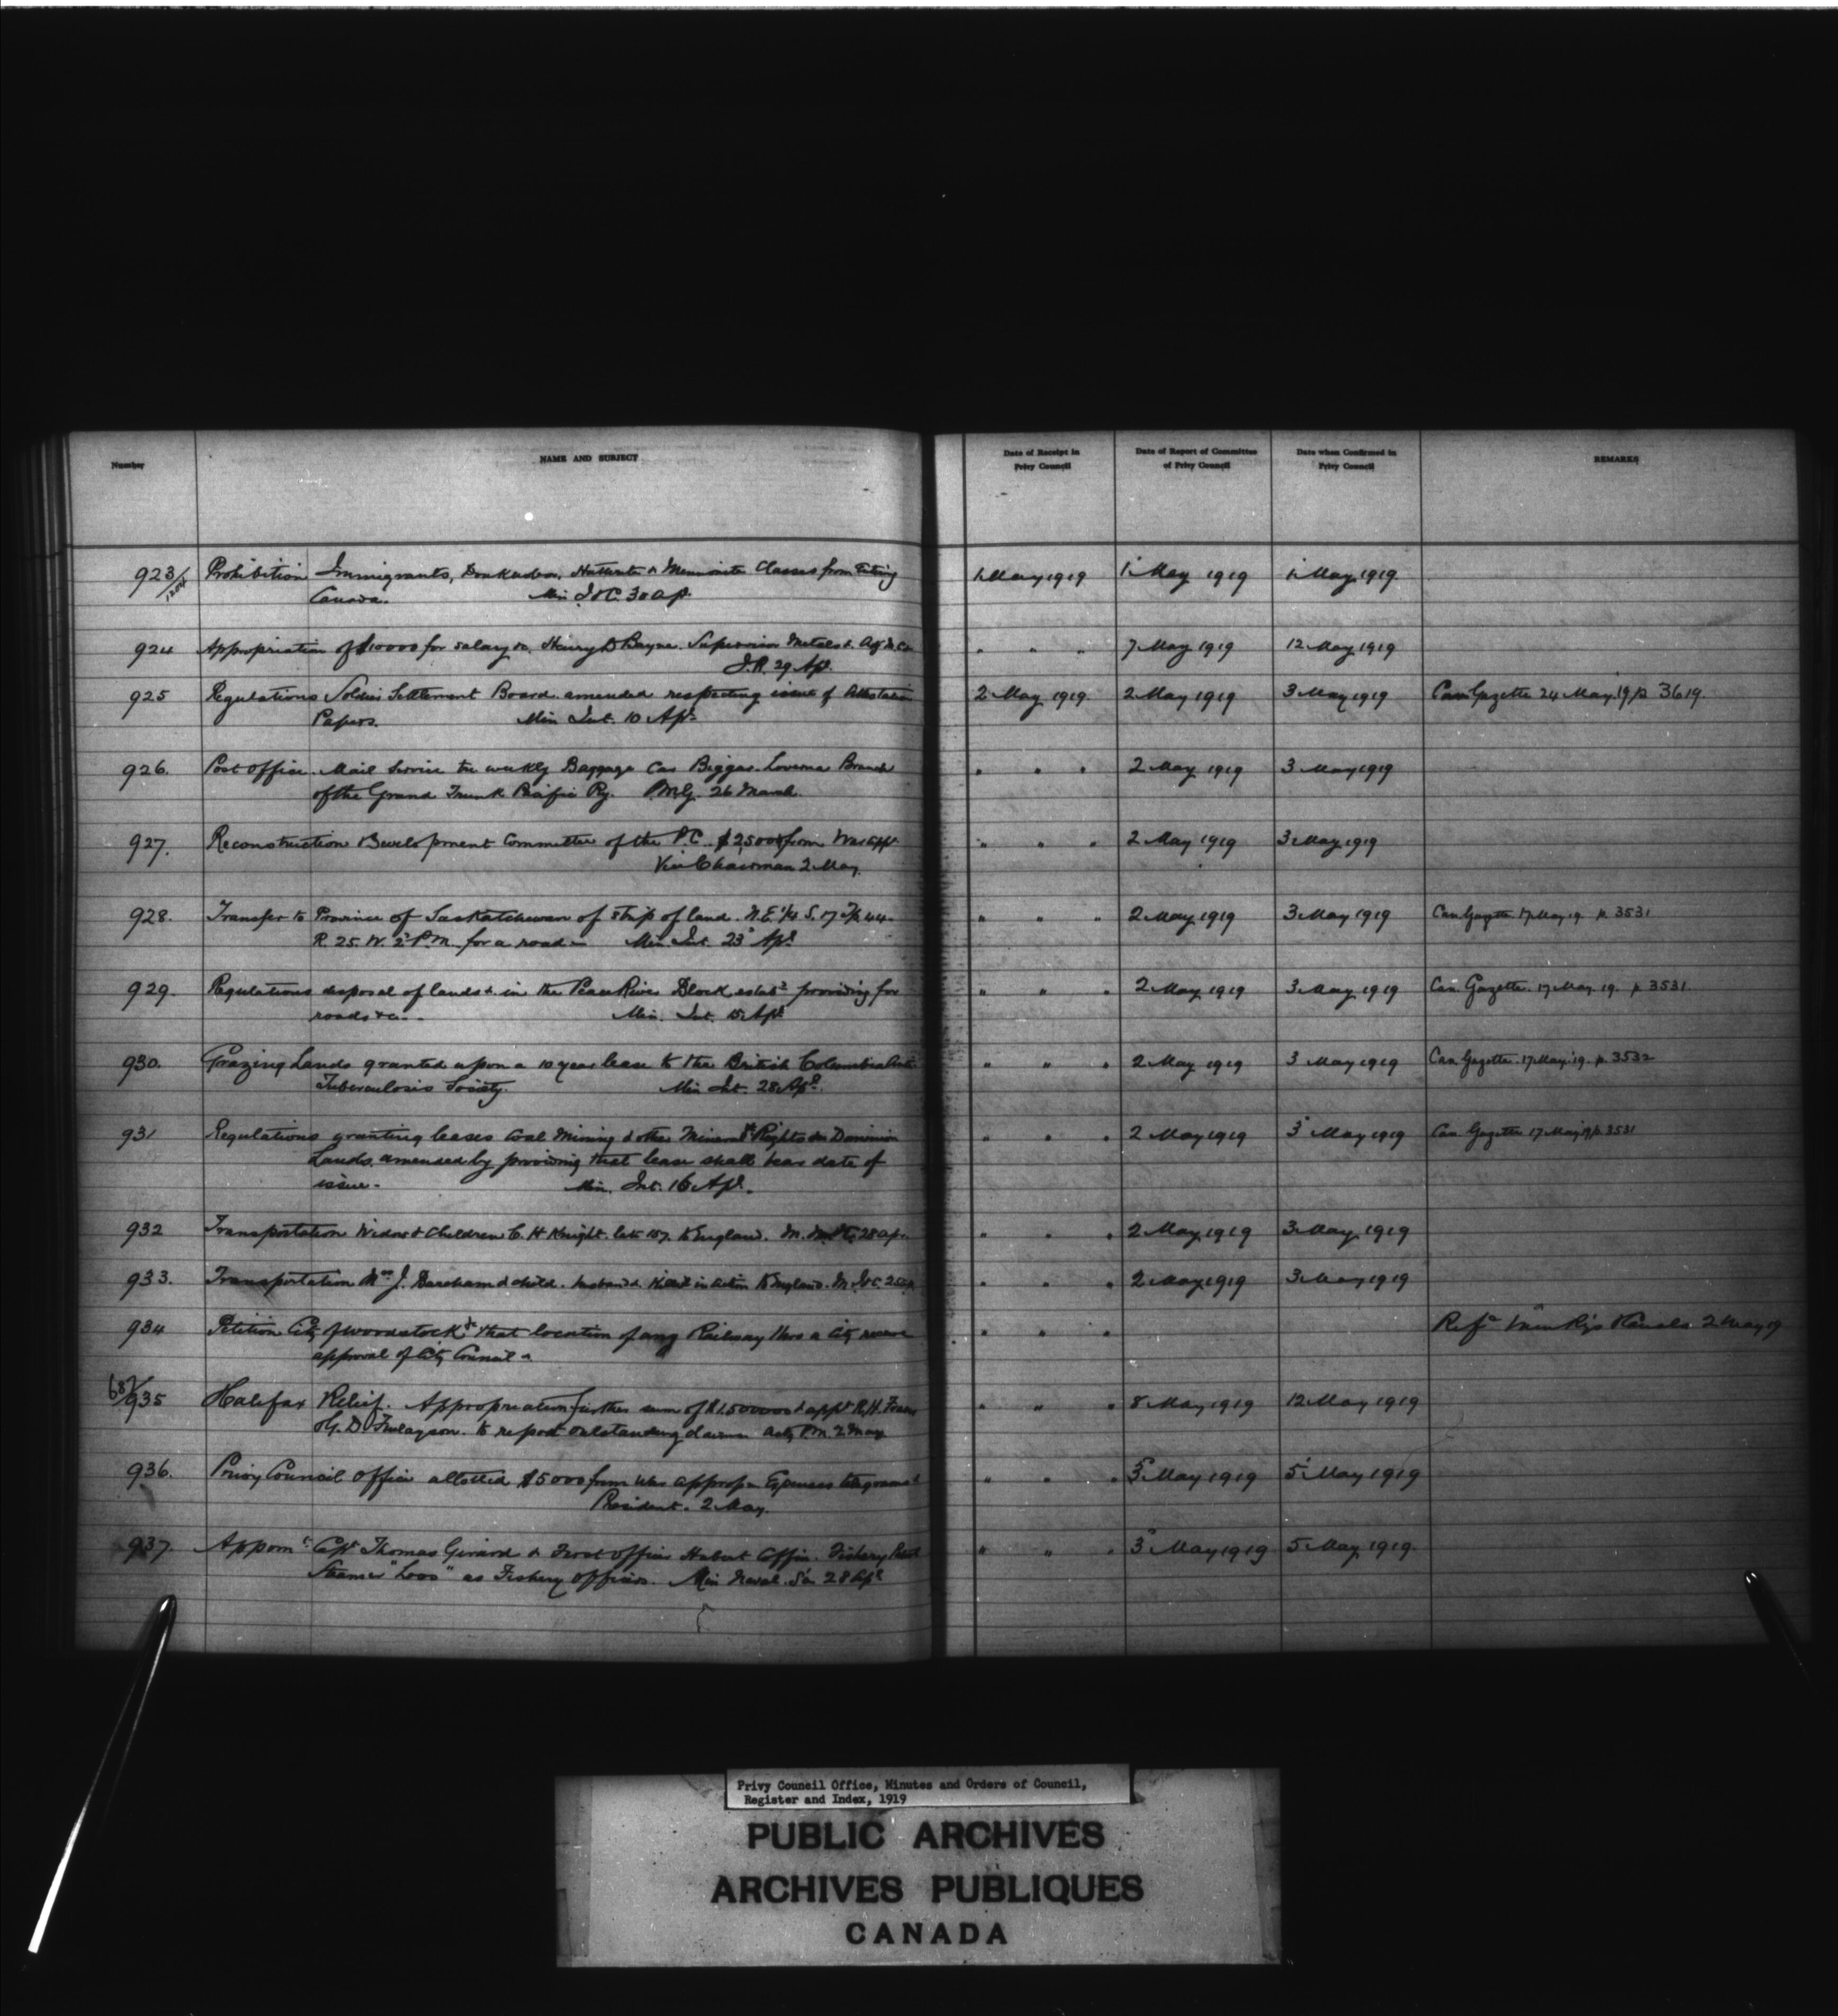 Number
NAME AND SUBJECT
Date of Receipt in Privy Council
Date of Report of Committee of Privy Council
Date when Confirmed in Privy Council
REMARKS
923/1204 Prohibition Immigrants, Doukhobor, Hutterite & Mennonite Classes from Entering 1 May 1919 1 May 1919 1 May 1919
Canada. Min I & C. 30 Ap.
924 Appropriation of $10000 for salary &c. Henry D Bayne. Supervisor Metals 7 May 1919 12 May 1919
29 Apl.
925 Regulations Soldier Settlement Board amended respecting issue of Attestation 2 May 1919 2 May 1919 3 May 1919 Can Gazette 24 May 19 p 3619.
Papers. Min Int. 10 Apl
926. Post Office. Mail Service tri weekly Baggage Car Biggar Loverna Branch " " " 2 May 1919 3 May 1919
of the Grand Trunk Pacific Ry. P.M.G. 26 March.
927. Reconstruction & Development Committee of the P.C. $25000 from War App " " " 2 May 1919 3 May 1919
Vice Chairman 2 May.
928. Transfer to Province of Saskatchewan of strip of land. N.E. 1/4 S. 17 Tp 44 " " " 2 May 1919 3 May 1919 Can Gazette 17 May 19 p. 3531
R. 25. W. 2 P.M. for a road Min Int. 23 Apl
929. Regulations disposal of lands &c in the Peace River Block estabd providing for " " " 2 May 1919 3 May 1919 Can Gazette. 17 May. 19. p 3531.
roads &c. Min. Int. 15 Apl
930. Grazing Lands granted upon a 10 year lease to the British Columbia Anti " " " 2 May 1919 3 May 1919 Can Gazette. 17 May. 19. p. 3532
Tuberculosis Society. Min Int. 28 Apl.
931 Regulations granting leases Coal Mining & other Mineral Rights on Dominion " " " 2 May 1919 3 May 1919 Can Gazette 17 May 19 p 3531
Lands amended by providing that lease shall bear date of
issue. Min. Int. 16 Apl.
932 Transportation Widow & Children C. H Knight. late to England. 28 Ap. " " " 2 May 1919 3 May 1919
933. Transportation Mrs J. Bareham & child. husband killed in action to England. M. I & C. " " " 2 May 1919 3 May 1919
934 Petition City of Woodstock that location of any Railway thro a City receive " " " Refd Min Rys & Canals 2 May 19
approval of City Council
687/935 Halifax Relief. Appropriation further sum of $1,500000 & appt R.H. Fraser " " " 8 May 1919 12 May 1919
& G. D Finlayson. to report outstanding claims Actg P.M. 2 May
936. Privy Council Office allotted $5000 from War approp Expenses telegrams " " " 3 May 1919 5 May 1919
President. 2 May.
937. Appomt Capt Thomas Girard & First Officer Hubert Coffin. Fishery " " " 3 May 1919 5 May 1919.
Steamer "Loos" as Fishery Officers. Min Naval. 28 Apl
Privy Council Office, Minutes and Orders of Council,
Register and Index, 1919
PUBLIC ARCHIVES
ARCHIVES PUBLIQUES
CANADA